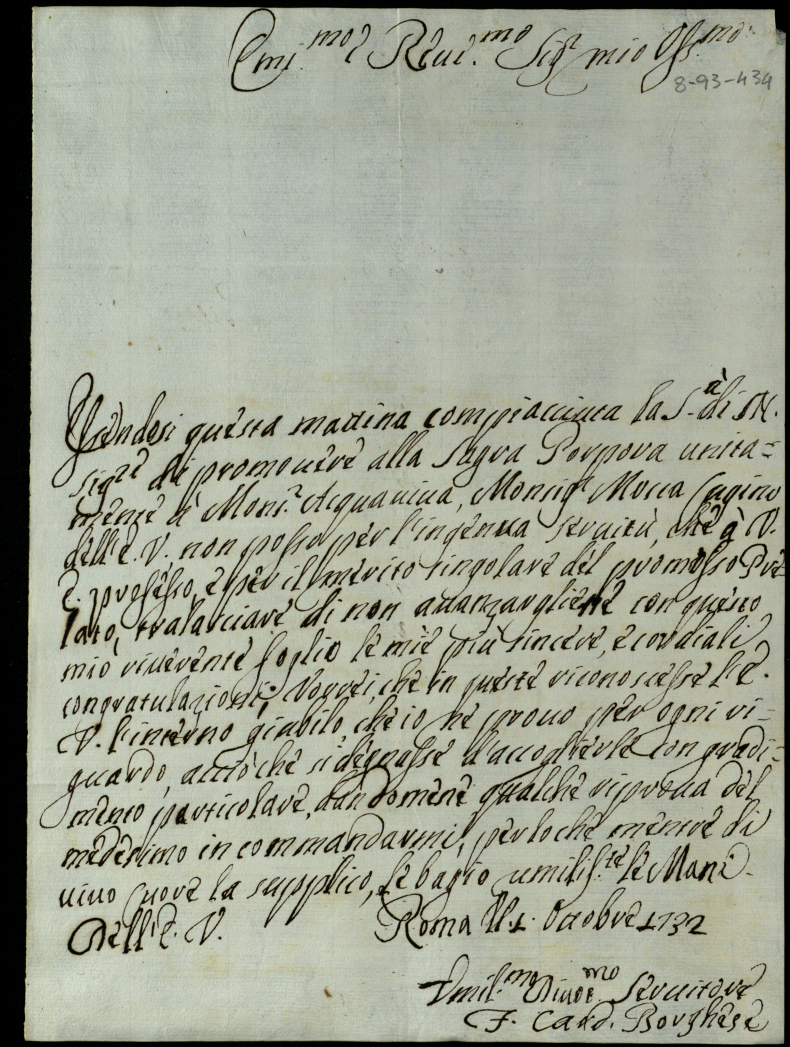 Emi.mo e Reue.mo Sig.r mio Oss.mo
8-93-434
Essendosi questa mattina compiaciuta la S.tà di N.
Sig.re di promouere alla Sagra Porpora unita=
mente à Mons.r Acquauiua, Monsig.r Mosca Cugino
dell'E. V. non posso per l'ingenua seruitù, che à V.
E. professo, e per il merito singolare del promosso Pre
lato, tralasciare di non auanzargliene con questo
mio riuerente foglio le mie più sincere, e cordiali
congratulazioni; Vorrei, che in queste riconoscesse l'E.
V. l'interno giubilo, che io ne prouo per ogni ri=
guardo, acciò che si degnasse d'accoglierle con gradi=
mento particolare, dandomene qualche riproua del
medesimo in commandarmi, perloche mentre di
uiuo Cuore la supplico, le bagio umiliss.te le Mani.
Dell'E. V. Roma li 1. Ottobre 1732
Vmil.mo Diuot.mo Seruitore
F. Card. Borghese